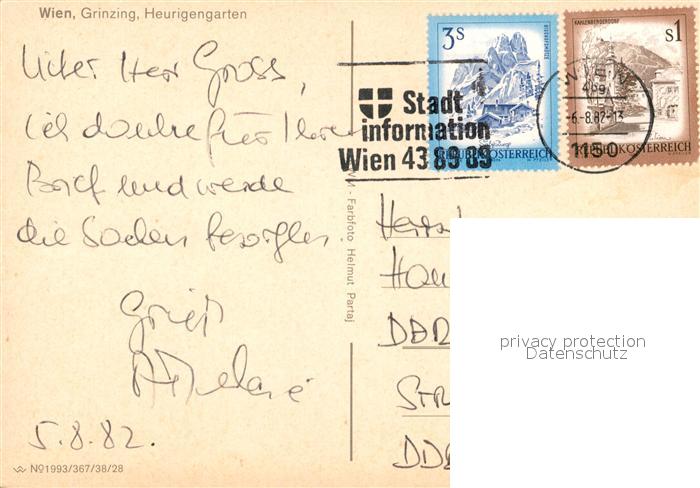 Wien, Grinzing, Heurigengarten
Lieber Herr Gross,
ich danke für Ihren
Brief und werde
die Sachen besorgen.
Gruß
5.8.82.
W Nº1993/367/38/28
- Farbfoto Helmut Partaj
Stadt
information
Wien 43 89 89
3s
REPUBLIK ÖSTERREICH
KAHLENBERGERDORF
s1
REPUBLIK ÖSTERREICH
WIEN
-6.-8.82-13
1150
Herrn
DDR
STR
DD
privacy protection
Datenschutz